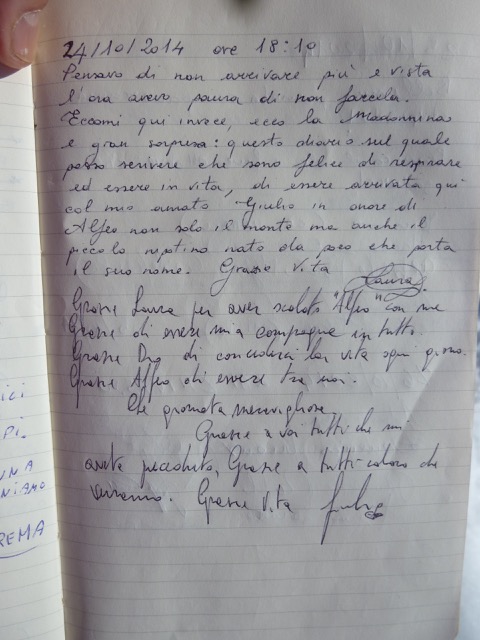 24/10/2014 ore 18:10
Pensavo di non arrivare più e vista
l'ora avevo paura di non farcela.
Eccomi qui invece, ecco la Madonnina
e gran sorpresa: questo diario sul quale
posso scrivere che sono felice di respirare
ed essere in vita, di essere arrivata qui
col mio amato Giulio in onore di
Alfeo non solo il monte ma anche il
piccolo nipotino nato da poco che porta
il suo nome. Grazie Vita
Laura
Grazie Laura per aver scalato "Alfeo" con me
Grazie di essere mia compagna in tutto.
Grazie Dio di concederci la vita ogni giorno.
Grazie Alfeo di essere tra noi.
Che giornata meravigliosa
Grazie a voi tutti che mi
avete preceduto, Grazie a tutti coloro che
verranno. Grazie Vita
ICI
PI.
UNA
NIAMO
REMA